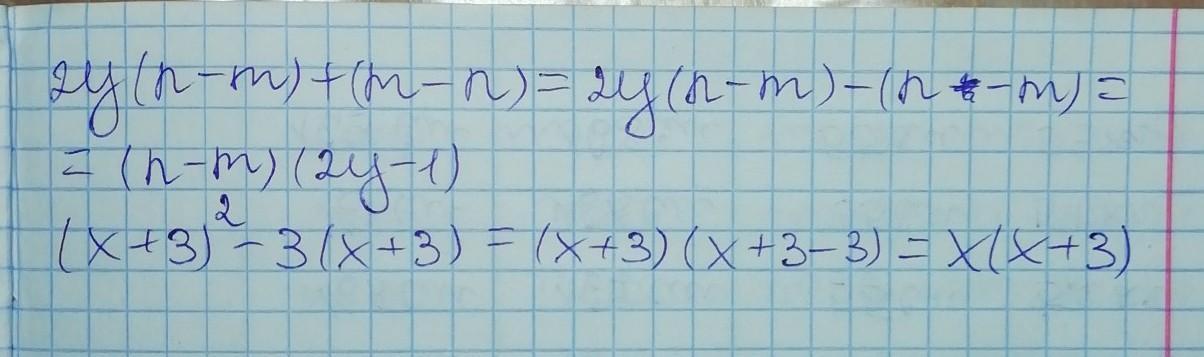 2y(n-m)+(m-n)=2y(n-m)-(n-m)=
=(n-m)(2y-1)
(x+3)²-3(x+3)=(x+3)(x+3-3)=x(x+3)